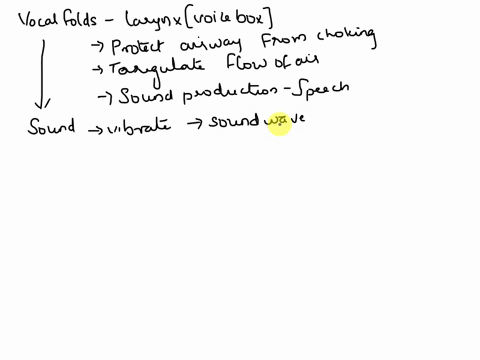 Vocal folds - larynx [voice box]
→ Protect airway from choking
→ Toregulate flow of air
→ Sound production - Speech
Sound → vibrate → sound wave